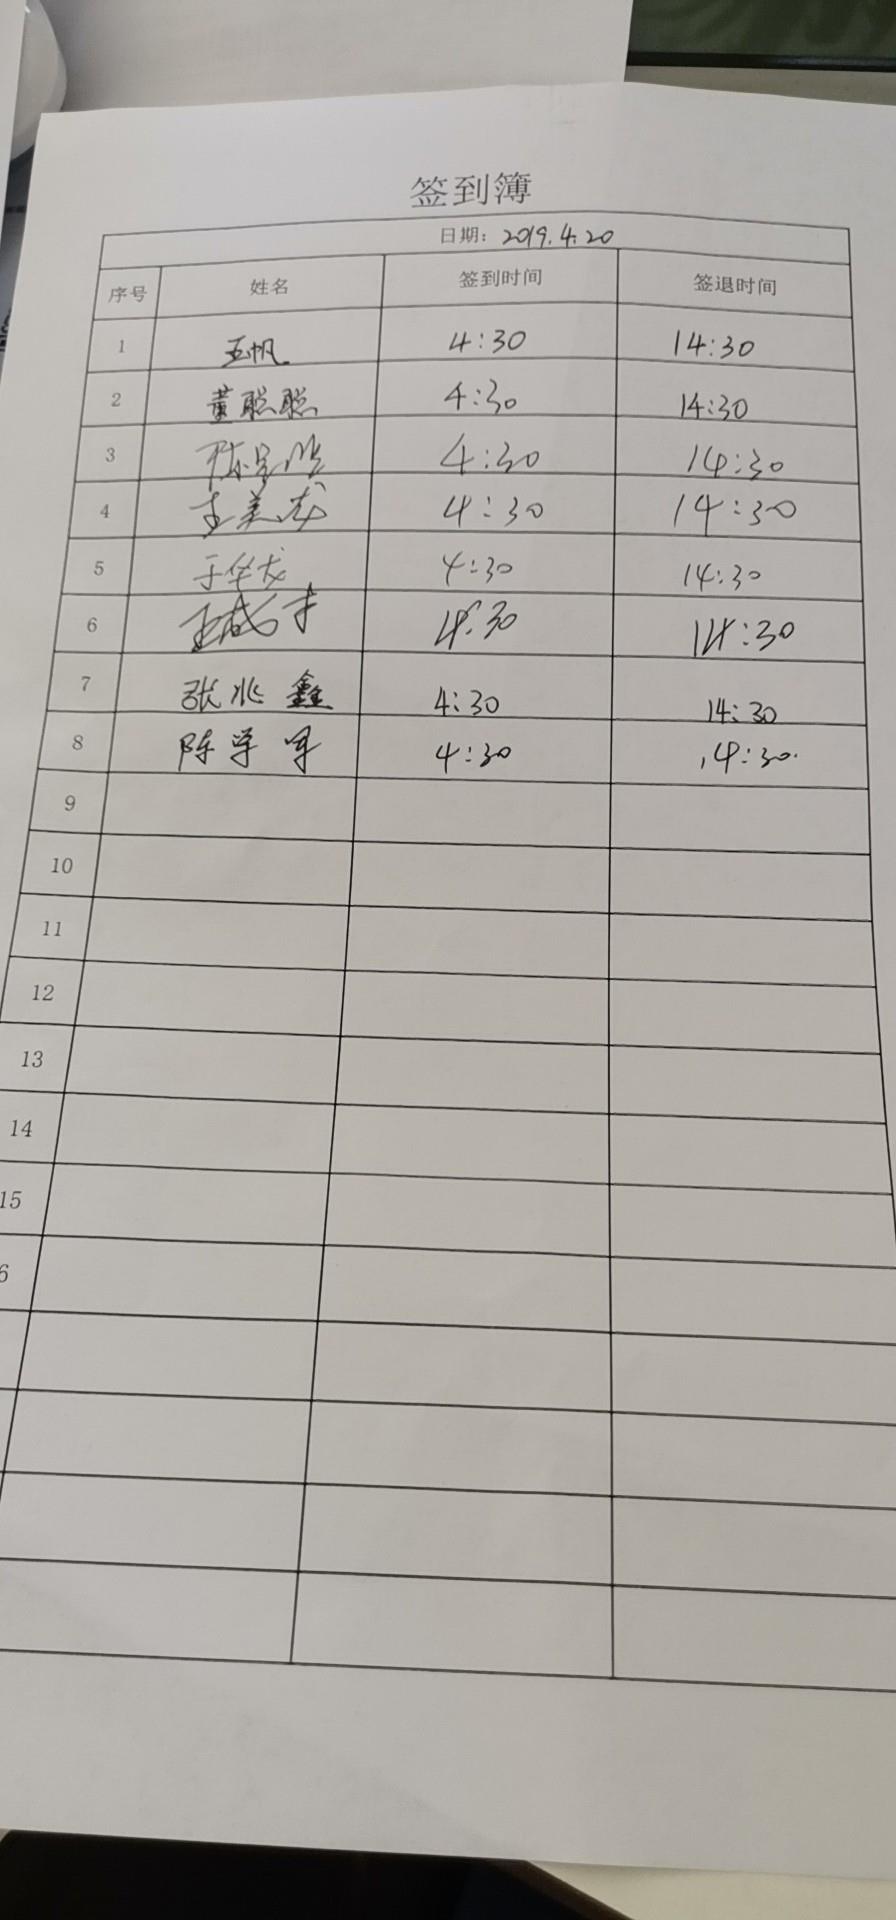 签到簿
日期: 2019.4.20
序号 姓名 签到时间 签退时间
1 王帆 4:30 14:30
2 董聪聪 4:30 14:30
3 4:30 14:30
4 李美龙 4:30 14:30
5 于华龙 4:30 14:30
6 4:30 14:30
7 张兆鑫 4:30 14:30
8 陈学军 4:30 14:30
9
10
11
12
13
14
15
6